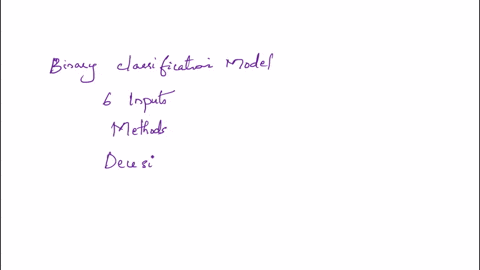 Binary classification Model
6 Inputs
Methods
Decisi